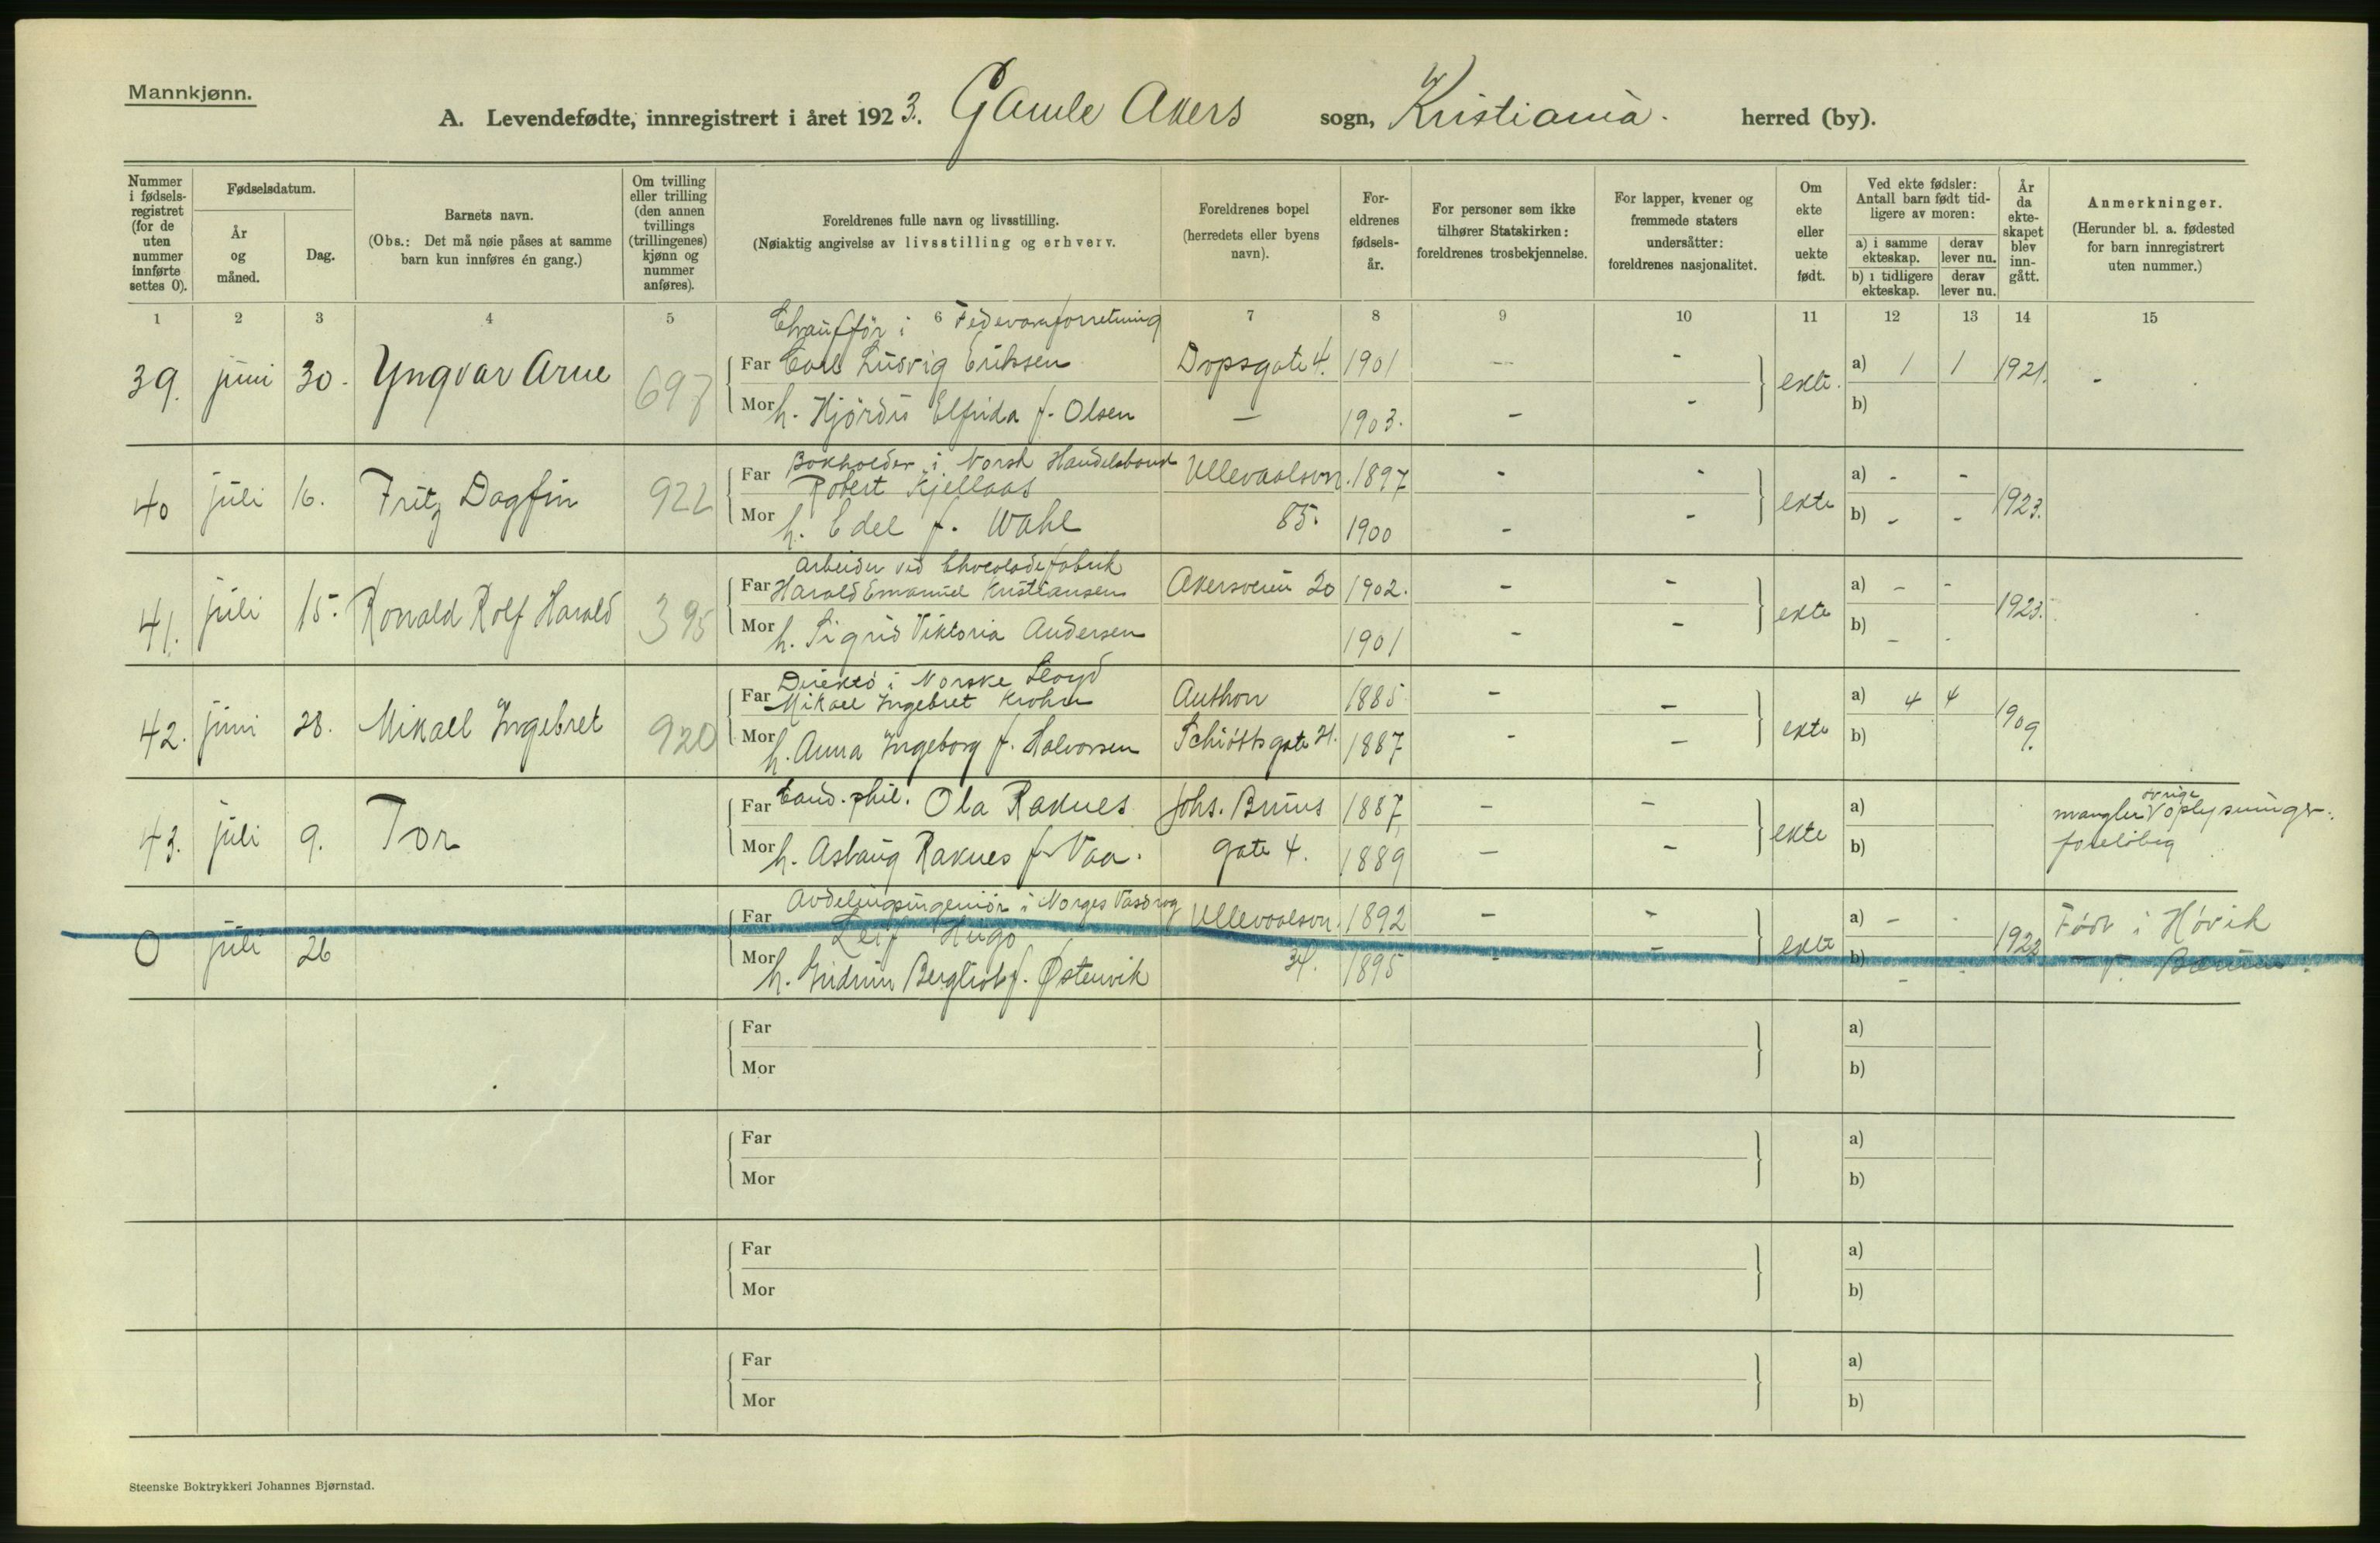 Mannkjønn.
A. Levendefødte, innregistrert i året 1923. Gamle Akers sogn, Kristiania. herred (by).
Nummer i fødsels-registret (for de uten nummer innførte settes 0).
Fødselsdatum.
År og måned.
Dag.
Barnets navn.
(Obs.: Det må nøie påses at samme barn kun innføres én gang.)
Om tvilling eller trilling (den annen tvillings (trillingenes) kjønn og nummer anføres).
Foreldrenes fulle navn og livsstilling.
(Nøiaktig angivelse av livsstilling og erhverv.
Foreldrenes bopel (herredets eller byens navn).
For-eldrenes fødsels-år.
For personer som ikke tilhører Statskirken: foreldrenes trosbekjennelse.
For lapper, kvener og fremmede staters undersåtter: foreldrenes nasjonalitet.
Om ekte eller uekte født.
Ved ekte fødsler: Antall barn født tid-ligere av moren:
a) i samme ekteskap.
derav lever nu.
b) i tidligere ekteskap.
derav lever nu.
År da ekte-skapet blev inn-gått.
Anmerkninger.
(Herunder bl. a. fødested for barn innregistrert uten nummer.)
1 2 3 4 5 6 7 8 9 10 11 12 13 14 15
Chaufför i Fedevareforretning
39. juni 30. Yngvar Arne 697 Far Carl Ludvig Eriksen Dopsgate 4. 1901 - - ekte. a) 1 1 1921. -
Mor h. Hjördis Elfrida f. Olsen - 1903. - - b)
Bokholder i Norsk Handelsbank
40 juli 16. Fritz Dagfin 922 Far Robert Kjellaas Ullevaalsvn. 1897 - - ekte a) - - 1923.
Mor h. Edel f. Wahl 85. 1900 - - b) - -
Arbeider ved Chocoladefabrik
41. juli 15. Ronald Rolf Harald 395 Far Harald Emanuel Kristiansen Akersveien 20 1902. - - ekte a) - - 1923.
Mor h. Sigrid Viktoria Andersen 1901 - - b) - -
Direktö i Norske Lloyd
42. juni 28. Mikael Ingebret 920 Far Mikael Ingebret Krohn Anthon 1885 - - ekte a) 4 4 1909.
Mor h. Anna Ingeborg f. Halvorsen Schiøttsgate 21. 1887 - - b)
43. juli 9. Tor Far Cand. phil. Ola Raknes Johs. Bruns 1887 - - ekte a) mangler øvrige oplysninger.
Mor h. Aslaug Raknes f. Vaa. gate 4. 1889 - - b) foreløbig
Avdelingsingeniör i Norges Vasdrag
0 juli 26 Far Leif Hugo Ullevaalsvn. 1892 - - ekte a) - - 1922 Født i Høvik
Mor h. Gudrun Bergliot f. Østenvik 34. 1895 - - b) - - V. Bærum.
Far a)
Mor b)
Far a)
Mor b)
Far a)
Mor b)
Far a)
Mor b)
Steenske Boktrykkeri Johannes Bjørnstad.